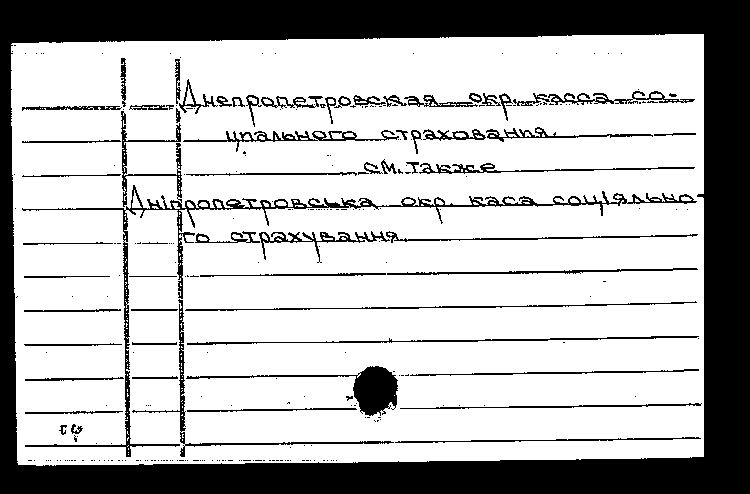 Днепропетровская окр. касса со-
циального страхования.
см. также
Дніпропетровська окр. каса соціяльно-
го страхування.